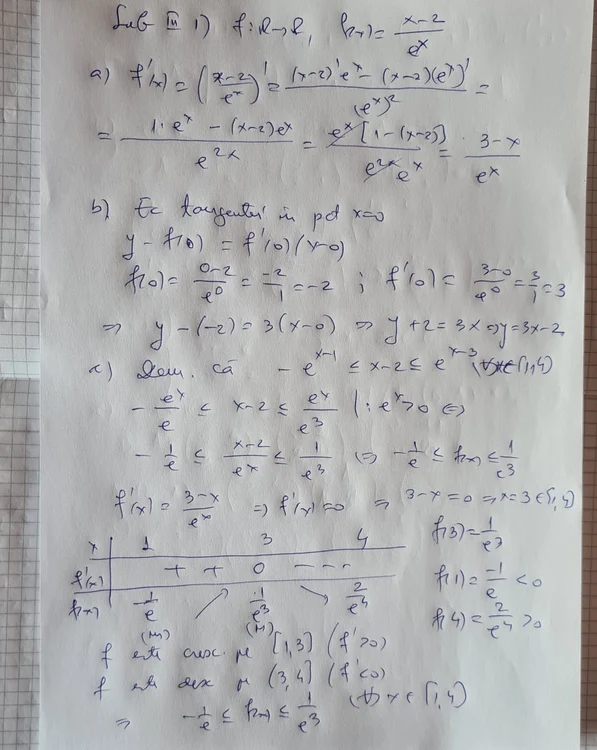 Sub III 1) f: R→R, f(x) = (x-2)/e^x
a) f'(x) = ((x-2)/e^x)' = ((x-2)'e^x - (x-2)(e^x)')/(e^x)^2 =
= (1·e^x - (x-2)e^x)/e^2x = e^x[1-(x-2)]/(e^2x e^x) = (3-x)/e^x
b) Ec tangentei in pct x=0
y - f(0) = f'(0)(x-0)
f(0) = (0-2)/e^0 = -2/1 = -2 ; f'(0) = (3-0)/e^0 = 3/1 = 3
⇒ y - (-2) = 3(x-0) ⇒ y+2 = 3x ⇒ y = 3x-2
c) Dem. că -e^(x-1) ≤ x-2 ≤ e^(x-3) (∀)x∈[1,4)
-e^x/e ≤ x-2 ≤ e^x/e^3 |: e^x>0 ⇔
-1/e ≤ (x-2)/e^x ≤ 1/e^3 ⇔ -1/e ≤ f(x) ≤ 1/e^3
f'(x) = (3-x)/e^x ⇒ f'(x)=0 ⇒ 3-x=0 ⇒ x=3∈[1,4)
x 1 3 4
f'(x) + + 0 - - - -
f(x) -1/e ↗ 1/e^3 ↘ 2/e^4
(m) (M)
f(3) = 1/e^3
f(1) = -1/e < 0
f(4) = 2/e^4 > 0
f este cresc. pe [1,3] (f'>0)
f este desc pe (3,4] (f'<0)
⇒ -1/e ≤ f(x) ≤ 1/e^3 (∀)x∈[1,4)